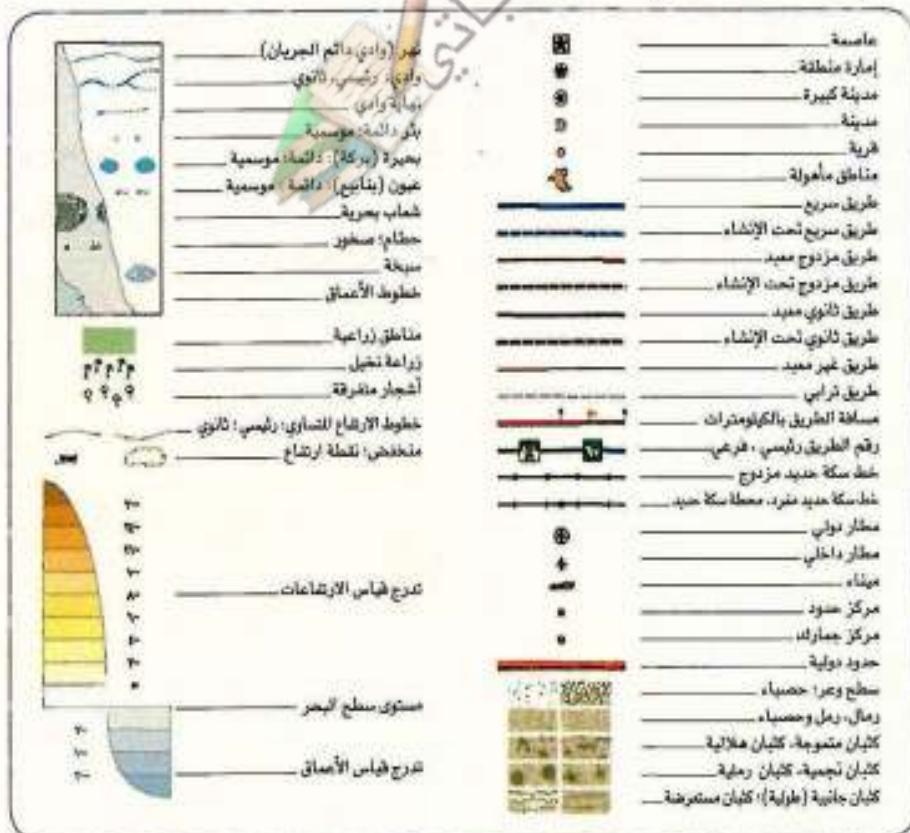 عاصمة
إمارة منطقة
مدينة كبيرة
مدينة
قرية
مناطق مأهولة
طريق سريع
طريق سريع تحت الإنشاء
طريق مزدوج معبد
طريق مزدوج تحت الإنشاء
طريق ثانوي معبد
طريق ثانوي تحت الإنشاء
طريق غير معبد
طريق ترابي
مسافة الطريق بالكيلومترات
رقم الطريق رئيسي، فرعي
خط سكة حديد مزدوج
خط سكة حديد مفرد، محطة سكة حديد
مطار دولي
مطار داخلي
ميناء
مركز حدود
مركز جمارك
حدود دولية
سطح وعر؛ حصباء
رمال، رمل وحصباء
كثبان متموجة، كثبان هلالية
كثبان نجمية، كثبان رملية
كثبان جانبية (طولية)؛ كثبان مستعرضة
نهر (وادي دائم الجريان)
وادي: رئيسي، ثانوي
نهاية وادي
بئر دائمة؛ موسمية
بحيرة (بركة): دائمة؛ موسمية
عيون (ينابيع): دائمة؛ موسمية
شعاب بحرية
حطام؛ صخور
سبخة
خطوط الأعماق
مناطق زراعية
زراعة نخيل
أشجار متفرقة
خطوط الارتفاع المتساوي: رئيسي؛ ثانوي
منخفض؛ نقطة ارتفاع
تدرج قياس الارتفاعات
مستوى سطح البحر
تدرج قياس الأعماق